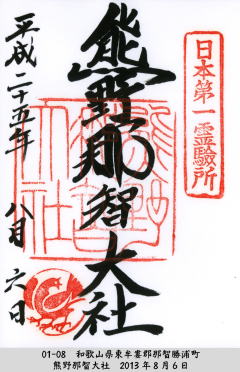 日本第一霊験所
熊野那智大社
平成二十五年 八月 六日
01-08 和歌山県東牟婁郡那智勝浦町
熊野那智大社 2013年8月6日